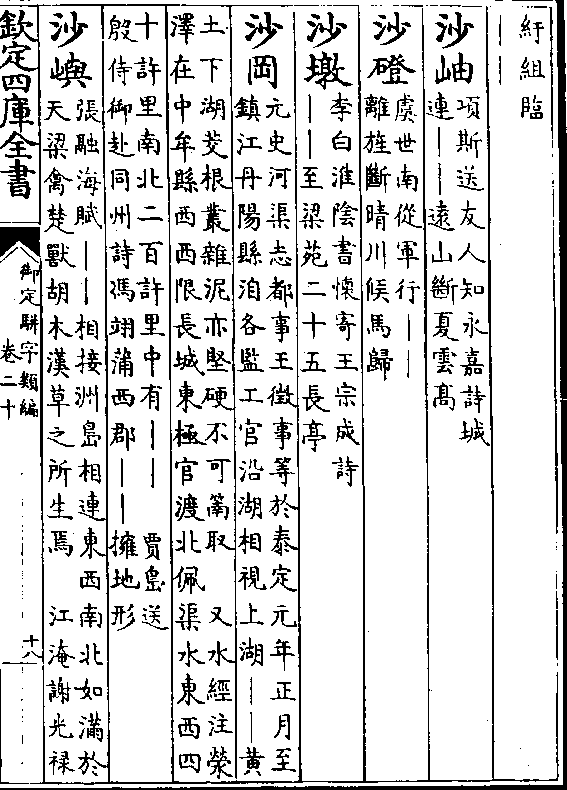 紆組臨
｜｜
沙岫 項斯送友人知永嘉詩城
連｜｜遠山斷夏雲高
沙磴 虞世南從軍行｜｜
離旌斷晴川候馬歸
沙墩 李白淮陰書懷寄王宗成詩
｜｜至梁苑二十五長亭
沙岡 元史河渠志都事王徵事等於泰定元年正月至
鎮江丹陽縣洎各監工官沿湖相視上湖｜｜黄
土下湖茭根叢雜泥亦堅硬不可取 又水經注滎
澤在中牟縣西西限長城東極官渡北佩渠水東西四
十許里南北二百許里中有｜｜ 賈島送
殷侍御赴同州詩馮翊蒲西郡｜｜擁地形
沙嶼 張融海賦｜｜相接洲島相連東西南北如滿於
天梁禽楚獸胡木漢草之所生焉 江淹謝光禄
欽定四庫全書
御定駢字類編
卷二十
十八